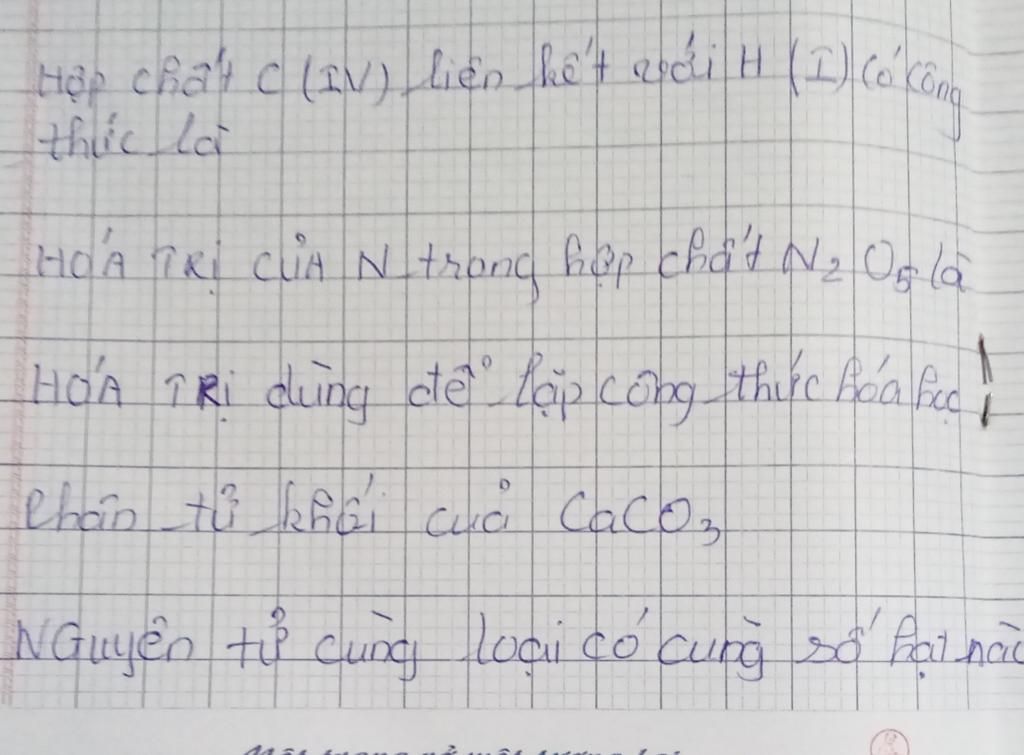 Hợp chất C (IV) liên kết với H (I) có công
thức là
HÓA TRỊ CỦA N trong hợp chất N₂O₅ là
HÓA TRỊ dùng để lập công thức hóa học
Phân tử khối của CaCO₃
NGuyên tử cùng loại có cùng số hạt nào